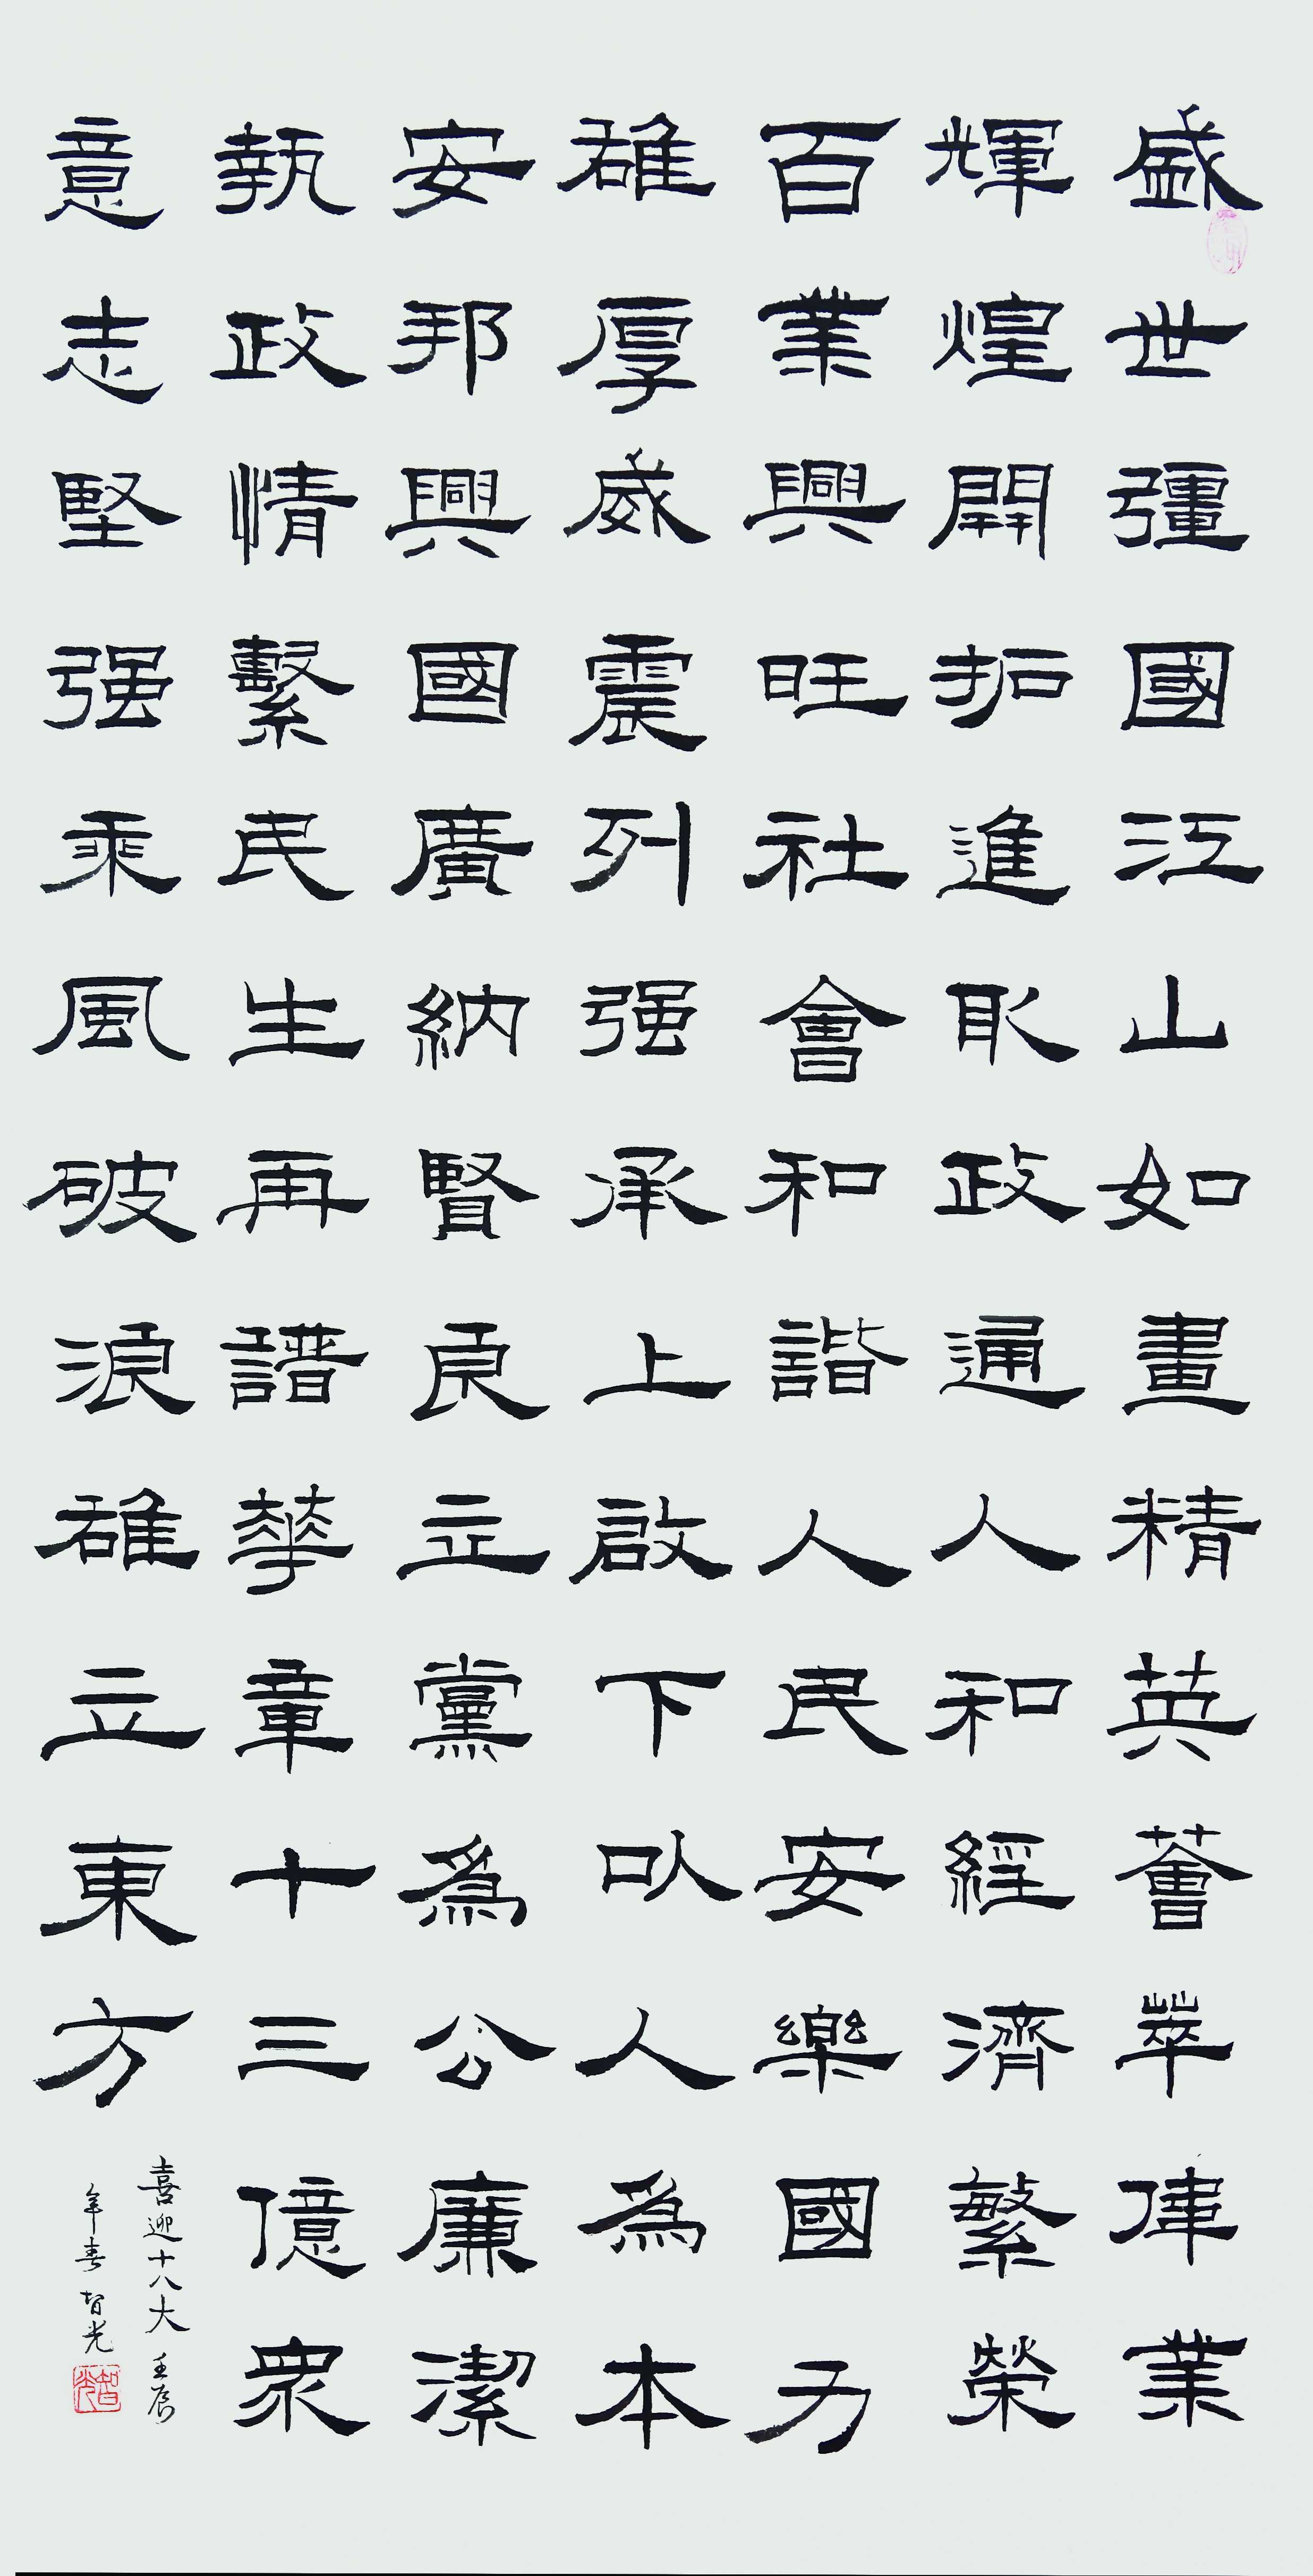 盛世彊國江山如畫精英薈萃偉業
輝煌開拓進取政通人和經濟繁榮
百業興旺社會和諧人民安樂國力
雄厚威震列强承上啟下以人為本
安邦興國廣納賢良立黨為公廉潔
執政情繫民生再譜華章十三億眾
意志堅强乘風破浪雄立東方
喜迎十八大 壬辰
年春 智光
智光